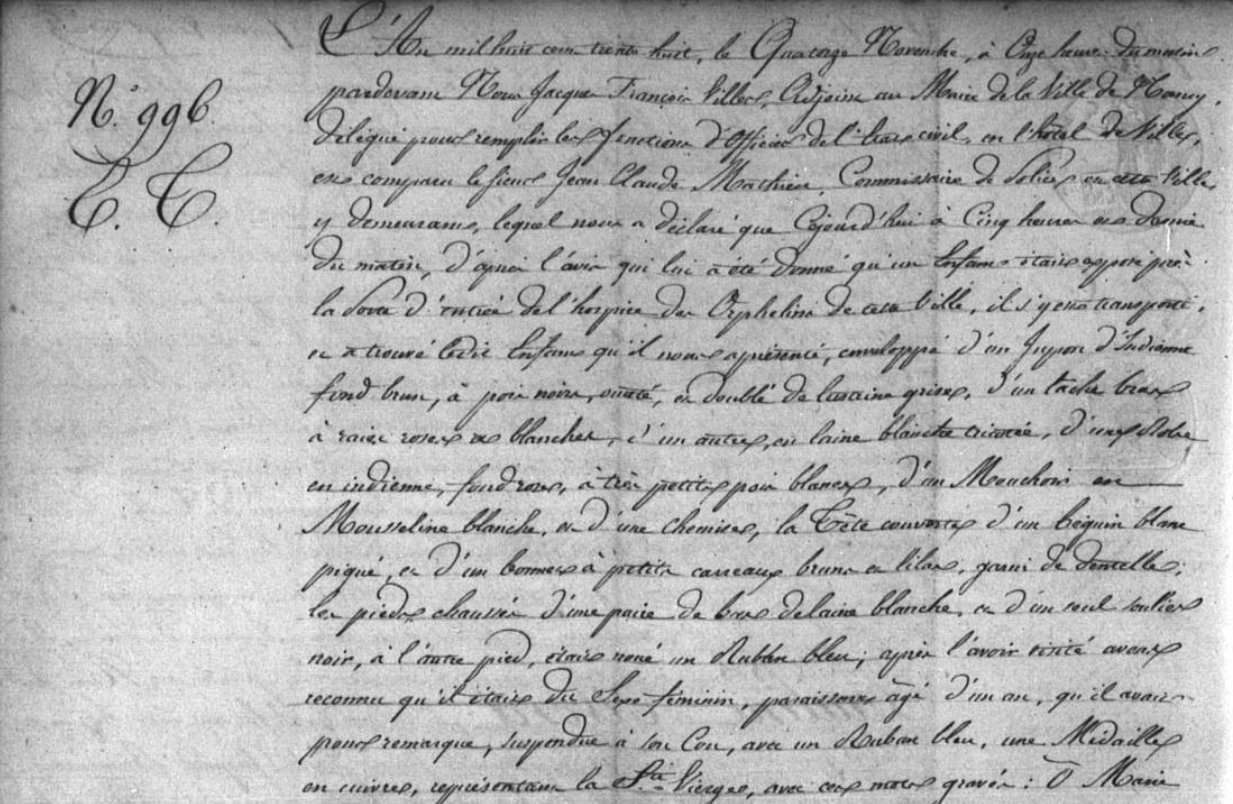 L'An mil huit cent trente huit, le Quatorze Novembre, à Onze heures du matin
pardevant Nous Jacques François Villers, Adjoint au Maire de la Ville de Nancy,
N.° 996.
délégué pour remplir les fonctions d'Officier de l'état civil, en l'hôtel de Ville,
E. T.
est comparu le sieur Jean Claude Mathieu, Commissaire de Police en cette Ville
y demeurant, lequel nous a déclaré que Cejourd'hui à Cinq heures et demie
du matin, d'après l'avis qui lui a été donné qu'un Enfant était exposé près
la Porte d'entrée de l'hospice des Orphelins de cette Ville, il s'y est transporté,
et a trouvé ledit Enfant qu'il nous a présenté, enveloppé d'un Jupon d'Indienne
fond brun, à pois noirs, ouaté, et doublé de lustrine grise, d'un tache bras
à raies roses et blanches, d'un autre, en laine blanche tricotée, d'une Robe
en indienne, fond rose, à très petits pois blancs, d'un Mouchoir en
Mousseline blanche, et d'une chemise, la Tête couverte d'un béguin blanc
piqué, et d'un bonnet à petits carreaux bruns et lilas, garni de dentelle,
les pieds chaussés d'une paire de bas de laine blanche, et d'un seul soulier
noir, à l'autre pied, était noué un Ruban bleu; après l'avoir visité avons
reconnu qu'il était du Sexe féminin, paraissant âgé d'un an, qu'il avait
pour remarque, suspendue à son Cou, avec un Ruban bleu, une Médaille
en cuivre, représentant la Ste. Vierge, avec ces mots gravés: Ô Marie